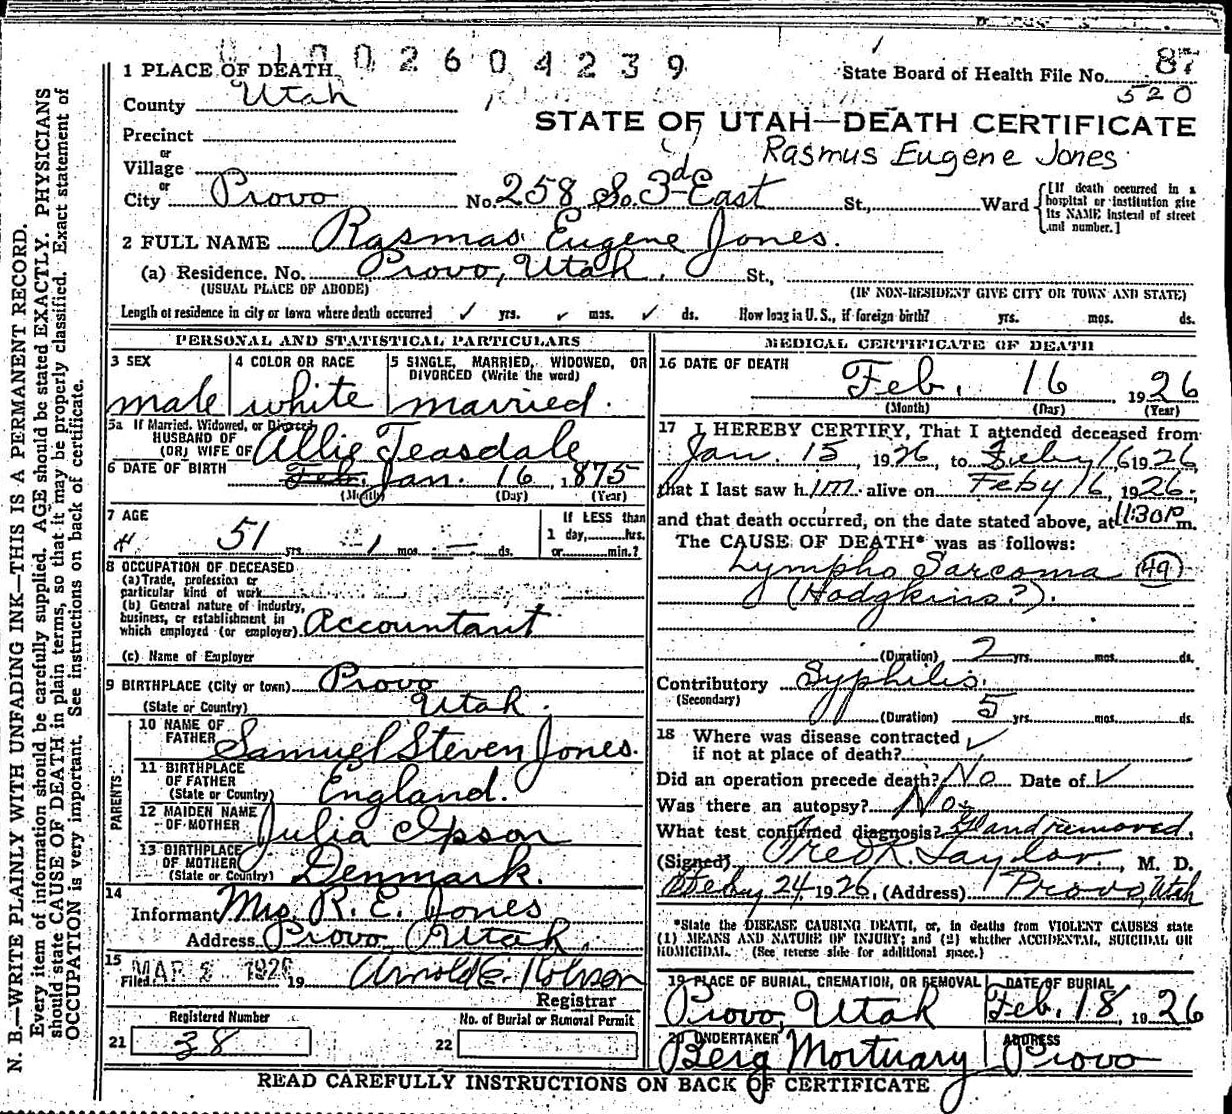 0 1 0 0 2 6 0 4 2 3 9
1 PLACE OF DEATH
State Board of Health File No. 87
520
County Utah
STATE OF UTAH—DEATH CERTIFICATE
Rasmus Eugene Jones
Precinct
or
Village
or
City Provo No. 258 So. 3d East St., Ward
[If death occurred in a hospital or institution give its NAME instead of street and number.]
2 FULL NAME Rasmas Eugene Jones.
(a) Residence. No. Provo, Utah. St.,
(USUAL PLACE OF ABODE) (IF NON-RESIDENT GIVE CITY OR TOWN AND STATE)
Length of residence in city or town where death occurred ✓ yrs. ✓ mos. ✓ ds. How long in U.S., if foreign birth? yrs. mos. ds.
PERSONAL AND STATISTICAL PARTICULARS
3 SEX
male
4 COLOR OR RACE
white
5 SINGLE, MARRIED, WIDOWED, OR DIVORCED (Write the word)
married.
5a If Married, Widowed, or Divorced
HUSBAND OF
(OR) WIFE OF Allie Teasdale
6 DATE OF BIRTH Feb. Jan. 16, 1875
(Month) (Day) (Year)
7 AGE
51 yrs. 1 mos. - ds.
If LESS than
1 day, hrs.
or min.?
8 OCCUPATION OF DECEASED
(a) Trade, profession or
particular kind of work
(b) General nature of industry,
business, or establishment in
which employed (or employer). Accountant
(c) Name of Employer
9 BIRTHPLACE (City or town) Provo
(State or Country) Utah.
PARENTS
10 NAME OF
FATHER Samuel Steven Jones.
11 BIRTHPLACE
OF FATHER
(State or Country) England.
12 MAIDEN NAME
OF MOTHER Julia Ipson
13 BIRTHPLACE
OF MOTHER
(State or Country) Denmark.
14
Informant Mrs. R. E. Jones
Address Provo, Utah.
15
Filed MAR 1926 19
Arnold E. Robison
Registrar
Registered Number
21 38
No. of Burial or Removal Permit
22
MEDICAL CERTIFICATE OF DEATH
16 DATE OF DEATH
Feb. 16 1926
(Month) (Day) (Year)
17 I HEREBY CERTIFY, That I attended deceased from
Jan. 15, 1926, to Feby 16 1926,
that I last saw him alive on Feby 16, 1926;
and that death occurred, on the date stated above, at 11:30 P m.
The CAUSE OF DEATH* was as follows:
Lympho Sarcoma (49)
(Hodgkins?).
(Duration) 2 yrs. mos. ds.
Contributory Syphilis.
(Secondary)
(Duration) 5 yrs. mos. ds.
18 Where was disease contracted
if not at place of death? ✓
Did an operation precede death? No Date of ✓
Was there an autopsy? No.
What test confirmed diagnosis? Gland removed.
(Signed) Fred R. Taylor, M. D.
Feby 24, 1926, (Address) Provo, Utah
*State the DISEASE CAUSING DEATH, or, in deaths from VIOLENT CAUSES state
(1) MEANS AND NATURE OF INJURY; and (2) whether ACCIDENTAL, SUICIDAL OR
HOMICIDAL. (See reverse side for additional space.)
19 PLACE OF BURIAL, CREMATION, OR REMOVAL
Provo, Utah
DATE OF BURIAL
Feb. 18, 1926
20 UNDERTAKER
Berg Mortuary
ADDRESS
Provo
READ CAREFULLY INSTRUCTIONS ON BACK OF CERTIFICATE
N. B.—WRITE PLAINLY WITH UNFADING INK—THIS IS A PERMANENT RECORD.
Every item of information should be carefully supplied. AGE should be stated EXACTLY. PHYSICIANS
should state CAUSE OF DEATH in plain terms, so that it may be properly classified. Exact statement of
OCCUPATION is very important. See instructions on back of certificate.